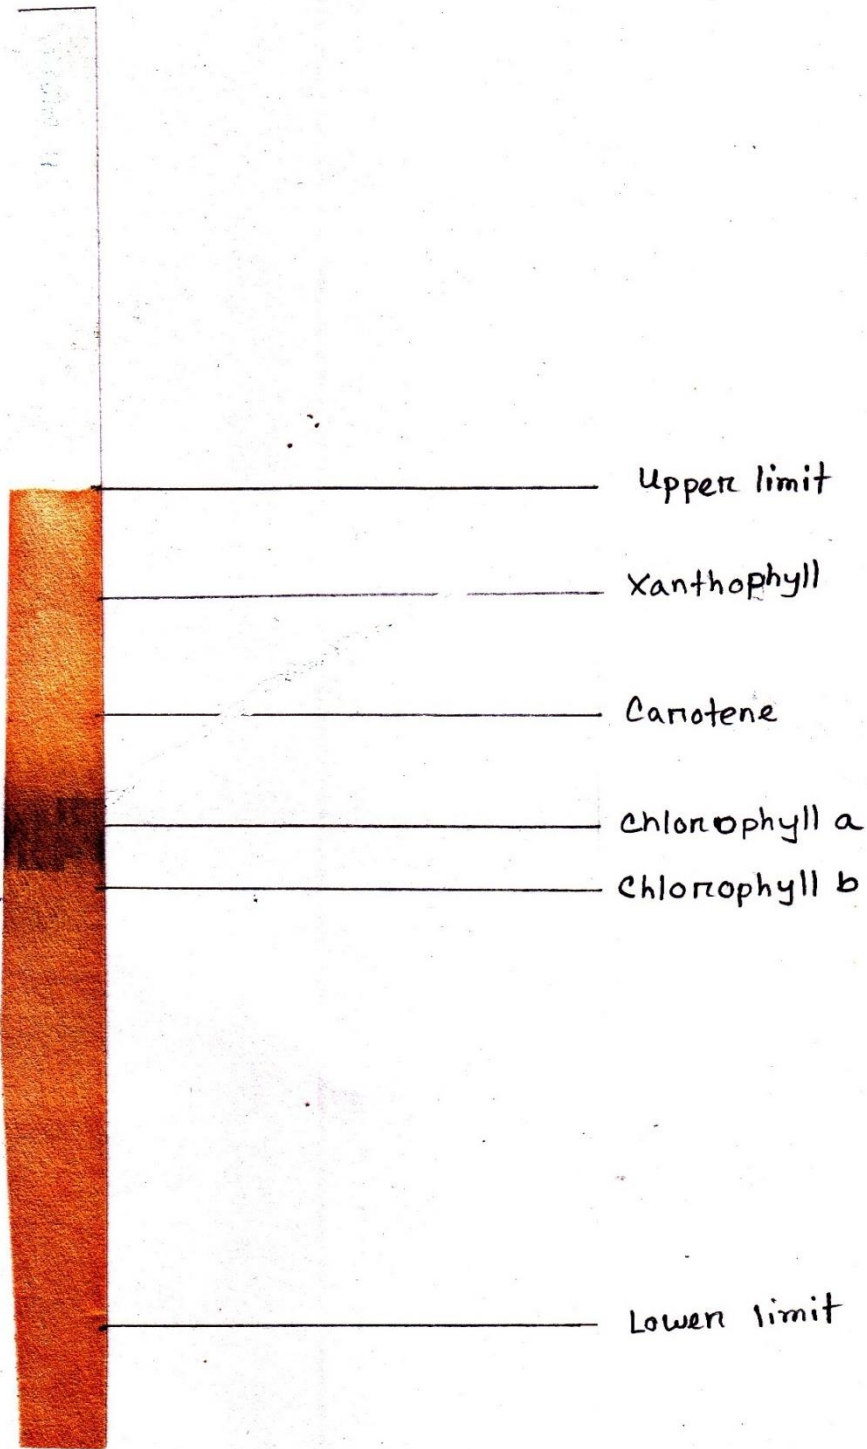 Upper limit
Xanthophyll
Carotene
Chlorophyll a
Chlorophyll b
Lower limit